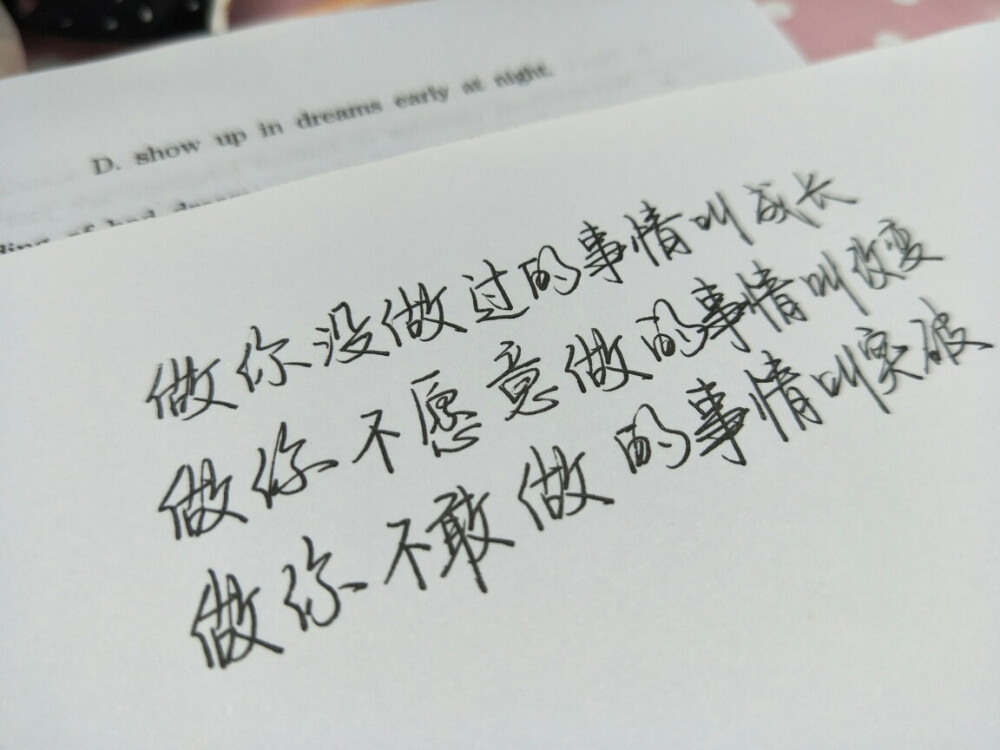 D. show up in dreams early at night.
of bad dream
做你没做过的事情叫成长
做你不愿意做的事情叫改变
做你不敢做的事情叫突破